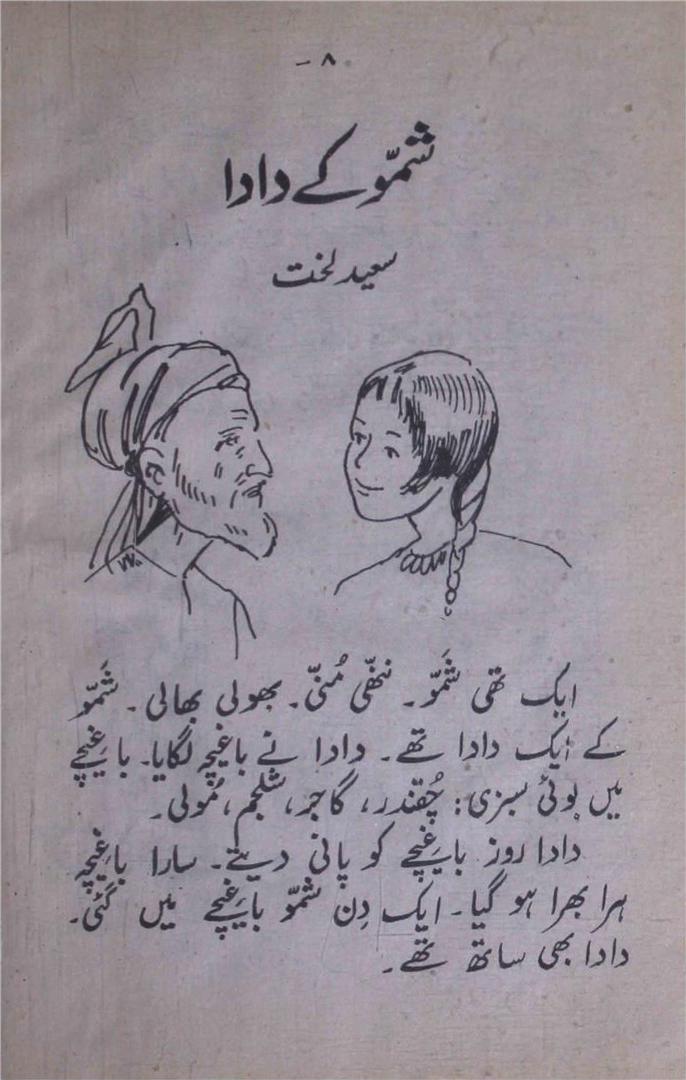 ۸ -
شمّو کے دادا
سعید لخت
ایک تھی شَمّو۔ ننھّی مُنّی۔ بھولی بھالی۔ شَمّو
کے ایک دادا تھے۔ دادا نے باغیچہ لگایا۔ باغیچے
میں بوئی سبزی: چُقندر، گاجر، شلجم، مُولی۔
دادا روز باغیچے کو پانی دیتے۔ سارا باغیچہ
ہرا بھرا ہو گیا۔ ایک دِن شمّو باغیچے میں گئی۔
دادا بھی ساتھ تھے۔